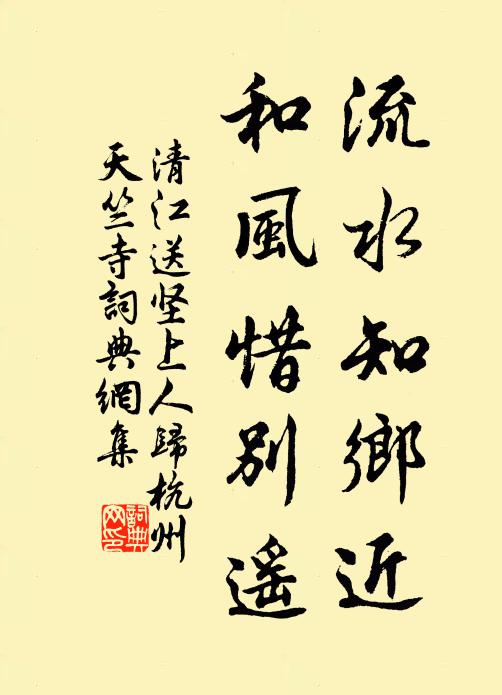 流水知鄉近
和風惜別遥
清江送坚上人歸杭州
天竺寺詞典網集
詞典
网印